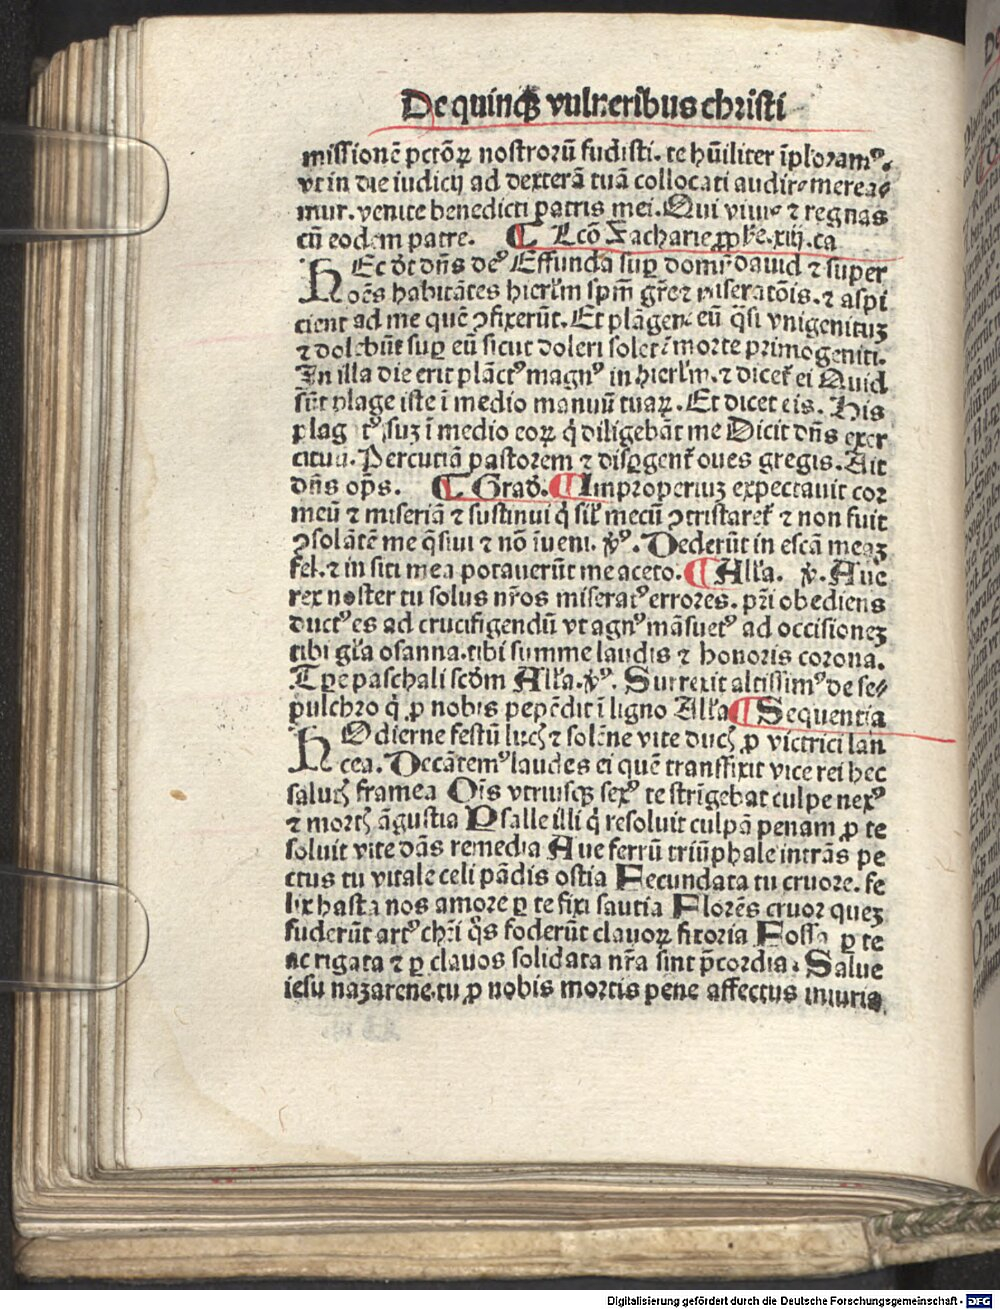 De quinqꝫ vulneribus christi
missionē pctōꝝ nostrorū fudisti. te hūiliter īploramꝰ.
vt in die iudicij ad dexterā tuā collocati audire merea⸗
mur. venite benedicti patris mei. Qui viuis ⁊ regnas
cū eodem patre. ¶ Lcō Zacharie ꝓphe. xiij. ca
HEc dt dn̄s deꝰ Effundā suꝑ domū dauid ⁊ super
oēs habitātes hierl̄m spm̄ grē ⁊ miseratōis. ⁊ aspi
cient ad me quē ↄfixerūt. Et plāgent eū q̄si vnigenituꝫ
⁊ dolebūt suꝑ eū sicut doleri solet ī morte primogeniti.
In illa die erit plāctꝰ magnꝰ in hierl̄m. ⁊ dicet̄ ei Quid
sūt plage iste ī medio manuū tuaꝝ. Et dicet eis. His
plag tꝰ suꝫ ī medio eoꝝ q̄ diligebāt me Dicit dn̄s exer
cituū. Percutiā pastorem ⁊ disꝑgent̄ oues gregis. Ait
dn̄s op̄s. ¶ Grad̄. ¶ Improperiuꝫ expectauit cor
meū ⁊ miseriā ⁊ sustinui q̄ sil̄ mecū ↄtristaret̄ ⁊ non fuit
ↄsolātē me q̄siui ⁊ nō īueni. v̄ꝰ. Dederūt in escā meaꝫ
fel. ⁊ in siti mea potauerūt me aceto. ¶ All̄a. v̄. Aue
rex noster tu solus nr̄os miseratꝰ errores. pr̄i obediens
ductꝰ es ad crucifigendū vt agnꝰ māsuetꝰ ad occisioneꝫ
tibi gl̄a osanna. tibi summe laudis ⁊ honoris corona.
Tꝑe paschali scd̄m All̄a. v̄ꝰ. Surrexit altissimꝰ de se⸗
pulchro q̄ ꝓ nobis pepēdit ī ligno All̄a ¶ Sequentia
HOdierne festū lucꝭ ⁊ solēne vite ducꝭ ꝓ victrici lan
cea. Decātemꝰ laudes ei quē transfixit vice rei hec
salutꝭ framea Oīs vtriusqꝫ sexꝰ te strīgebat culpe nexꝰ
⁊ mortꝭ āgustia Psalle illi q̄ resoluit culpā penam ꝓ te
soluit vite dās remedia Aue ferrū triūphale intrās pe
ctus tu vitale celi pādis ostia Fecundata tu cruore. fe
lix hasta nos amore ꝑ te fixi sautia Florēs cruor queꝫ
fuderūt artꝰ chr̄i q̄s foderūt clauoꝝ fixoria Fossa ꝑ te
ac rigata ⁊ ꝑ clauos solidata nr̄a sint p̄cordia. Salue
iesu nazarene. tu ꝓ nobis mortis pene affectus iniuria
Digitalisierung gefördert durch die Deutsche Forschungsgemeinschaft - DFG